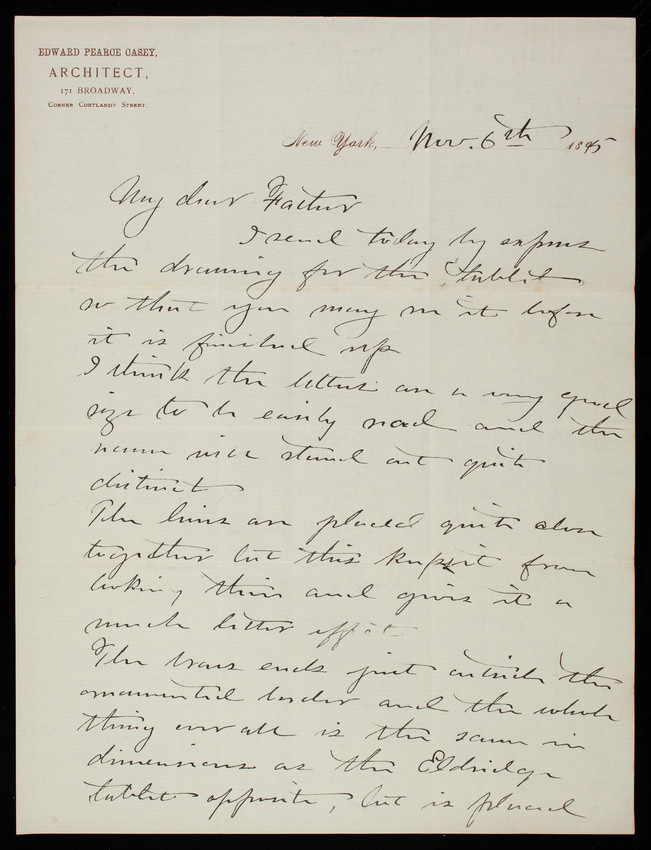 EDWARD PEARCE CASEY,
ARCHITECT,
171 BROADWAY,
CORNER CORTLANDT STREET.
New York, Nov. 6th 1895
My dear Father
I send today by express
the drawing for the tablet
so that you may see it before
it is finished up
I think the letters are a very good
size to be easily read and the
name will stand out quite
distinct
The lines are placed quite close
together but this keeps it from
looking thin and gives it a
much better effect
The brass ends just outside the
ornamental border and the whole
thing over all is the same in
dimensions as the Eldridge
tablet opposite, but is placed